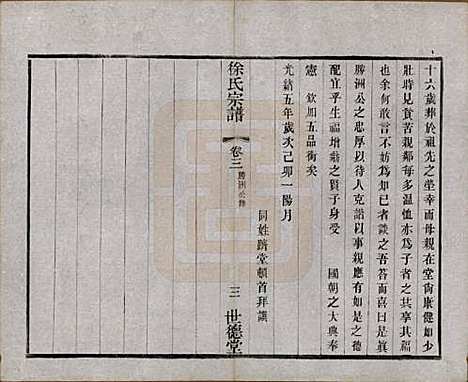 十六歲葬於祖先之塋幸而母親在堂尙康健如少
壯時見貧苦親鄰每多溫恤或向爲子者曰是眞
也余何敢言不妨爲知已者談之吾答而喜曰是眞
勝洲公之忠厚以待人克諧以事親應有如是之德
配宜乎生福增齡之賢子身受　國朝之大典奉
憲　欽加五品銜矣
光緒五年歲次己卯一陽月
同姓躋堂頓首拜譔
徐氏宗譜
卷三
勝洲公傳
三
世德堂